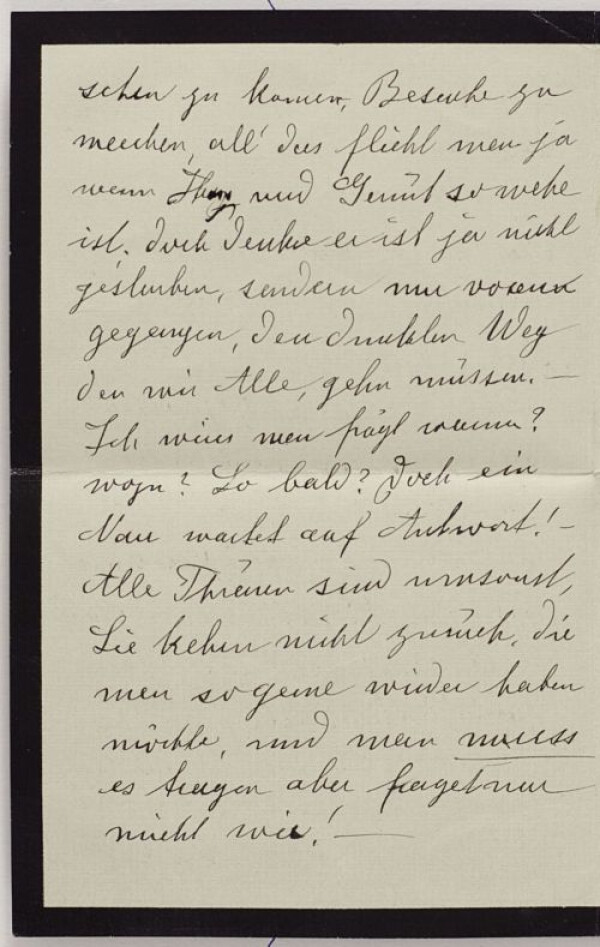 sehen zu komen, Besuche zu
machen, all' das flieht man ja
wenn Herz und Gemüt so wehe
ist. Doch denke er ist ja nicht
gestorben, sondern nur voraus
gegangen, den dunklen Weg
den wir Alle, gehn müssen. —
Ich weiss man frägt warum?
wozu? So bald? Doch ein
Narr wartet auf Antwort! —
Alle Thränen sind umsonst,
Sie kehren nicht zurück, die
man so gerne wieder haben
möchte, und man muss
es tragen aber fraget nur
nicht wie! —